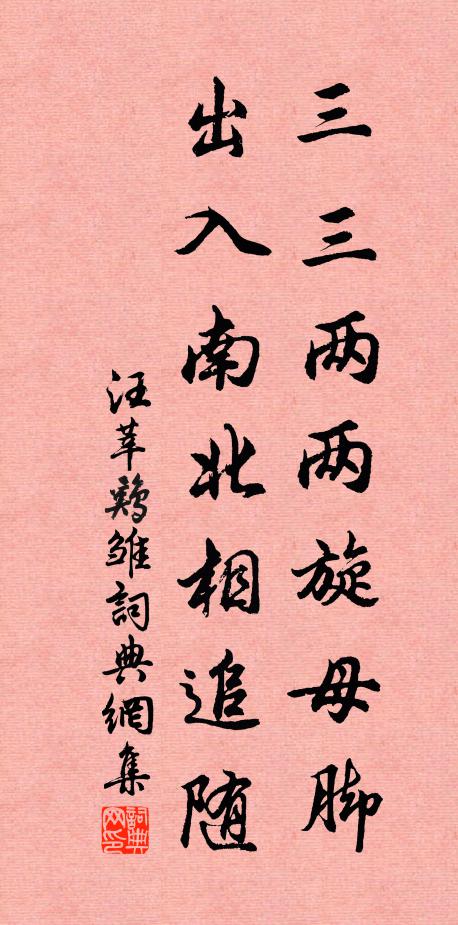 三三两两旋母脚
出入南北相追随
汪莘鷄雏詞典網集
詞典网印